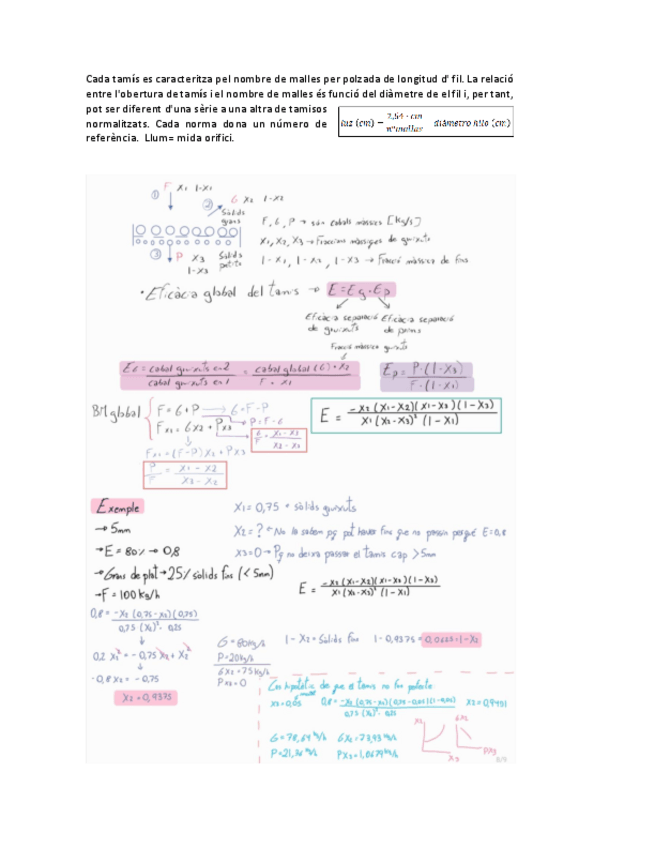 Cada tamís es caracteritza pel nombre de malles per polzada de longitud d' fil. La relació
entre l'obertura de tamís i el nombre de malles és funció del diàmetre de el fil i, per tant,
pot ser diferent d'una sèrie a una altra de tamisos
normalitzats. Cada norma dona un número de
referència. Llum= mida orifici.
luz (cm) = 2,54 · cm / nº mallas − diámetro hilo (cm)
① F X1 1-X1
② G X2 1-X2
Sòlids grans
F, G, P → són cabals màssics [Kg/s]
③ P X3 1-X3 Sòlids petits
X1, X2, X3 → Fraccions màssiques de gruixuts
1-X1, 1-X2, 1-X3 → Fracció màssica de fins
· Eficàcia global del tamis → E = EG · Ep
Eficàcia separació de gruixuts
Eficàcia separació de prims
Fracció màssica gruixuts
EG = cabal gruixuts en 2 / cabal gruixuts en 1 = cabal global (G) · X2 / F · X1
Ep = P · (1-X3) / F · (1-X1)
BM global
F = G + P → G = F - P
→ P = F - G
FX1 = GX2 + PX3
G/F = X1 - X3 / X2 - X3
E = -X2 (X1-X2)(X1-X3)(1-X3) / X1 (X2-X3)² (1-X1)
FX1 = (F-P)X2 + PX3
P/F = X1 - X2 / X3 - X2
Exemple
→ 5mm
→ E = 80% → 0,8
→ Grans de blat → 25% sòlids fins (< 5mm)
→ F = 100 kg/h
X1 = 0,75 = sòlids gruixuts
X2 = ? ← No la sabem pq pot haver fins que no passin perquè E=0,8
X3 = 0 → Pq no deixa passar el tamis cap > 5mm
E = -X2 (X1-X2)(X1-X3)(1-X3) / X1 (X2-X3)² (1-X1)
0,8 = -X2 (0,75-X2)(0,75) / 0,75 (X2)² · 0,25
0,2 X2² = -0,75 X2 + X2²
-0,8 X2 = -0,75
X2 = 0,9375
G = 80kg/h
P = 20kg/h
GX2 = 75 kg/h
PX3 = 0
1-X2 = Sòlids fins 1-0,9375 = 0,0625 = 1-X2
Con hipòtesis de que el tamis no fos perfecte
X3 = 0,05 0,8 = -X2 (0,75-X2)(0,75-0,05)(1-0,05) / 0,75 (X2)² · 0,25
G = 78,64 kg/h
P = 21,36 kg/h
PX3 = 1,0679 kg/h
X2
X3
GX2
PX3